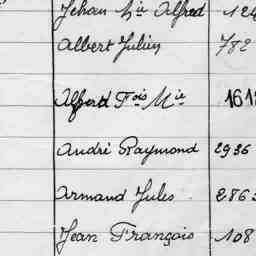 Jehan Lie Alfred 124
Albert Julien 782
Alfred Fois Mie 1617
André Raymond 2936
Armand Jules 2863
Jean François 108